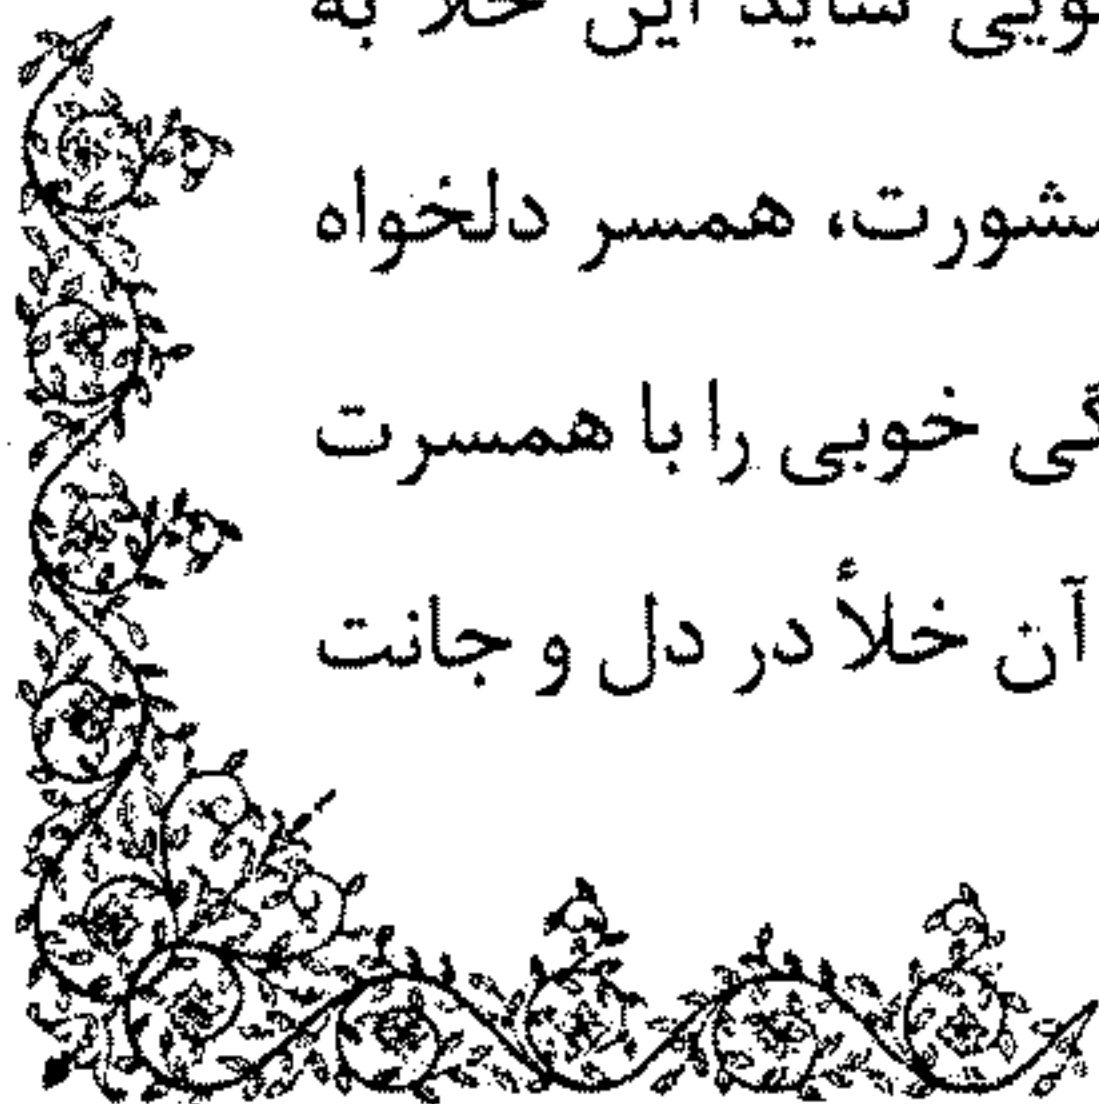 شاید این خلأ به
همسر دلخواه
خوبی را با همسرت
آن خلأ در دل و جانت